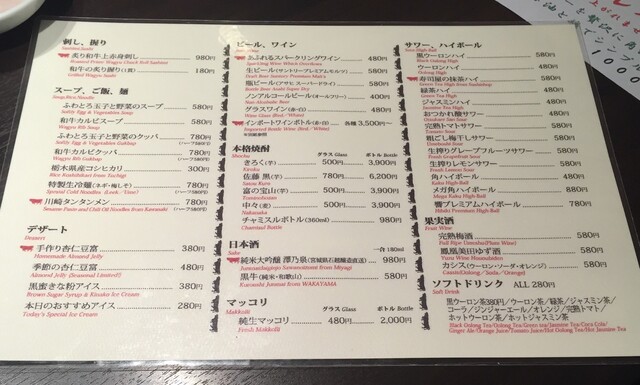 刺し、握り
Sashimi/Sushi
炙り和牛上赤身刺し 980円
和牛の炙り握り(一貫) 180円
Grilled Wagyu Sushi
スープ、ご飯、麺
Soup/Rice/Noodle
ふわとろ玉子と野菜のスープ 580円
Softly Egg & Vegetables Soup
和牛カルビスープ 580円
Wagyu Rib Soup
ふわとろ玉子と野菜のクッパ 780円
Softly Egg & Vegetables Gukbap (ハーフ580円)
和牛カルビクッパ 780円
Wagyu Rib Gukbap (ハーフ580円)
栃木県産コシヒカリ 300円
Rice Koshihikari from Tochigi
特製生冷麺(ネギ・梅しそ) 780円
Special Cold Noodles (ハーフ580円)
川崎タンタンメン 780円
Sesame Paste and Chili Oil Noodles from Kawasaki (ハーフ580円)
デザート
Dessert
手作り杏仁豆腐 380円
Homemade Almond Jelly
季節の杏仁豆腐 480円
Almond Jelly (Seasonal Limited)
黒蜜きな粉アイス 380円
Brown Sugar Syrup & Kinako Ice Cream
本日のおすすめアイス 280円
Today's Special Ice Cream
ビール、ワイン
Beer, Wine
あふれるスパークリングワイン 580円
Sparkling Wine Which Overflows
生ビール(サントリープレミアムモルツ) 580円
Draft Beer Suntory Premium Malt's
瓶ビール(アサヒ スーパードライ) 580円
Bottle Beer Asahi Super Dry
ノンアルコールビール(オールフリー) 400円
Non-Alcoholic Beer
グラスワイン(赤/白) 480円
Wine Glass (Red/White)
インポートワインボトル(赤/白) 各種 3,500円～
Imported Bottle Wine (Red/White)
本格焼酎 グラス Glass ボトル Bottle
Shochu
きろく(芋) 500円 3,900円
Kiroku
佐藤 黒(芋) 780円 6,200円
Satou Kuro
富の宝山(芋) 500円 3,900円
Tominohouzan
中々(麦) 500円 3,900円
Nakanaka
チャミスルボトル(360ml) 980円
Chamisul Bottle
日本酒 一合 180ml
Sake
純米大吟醸 澤乃泉(宮城県石越醸造直送) 980円
Junmaidaiginjo Sawanoizumi from Miyagi
黒牛(純米・和歌山) 580円
Kuroushi Junmai from WAKAYAMA
マッコリ グラス Glass ボトル Bottle
Makkolli
純生マッコリ 480円 2,000円
Fresh Makkolli
サワー、ハイボール
Sour/High Ball
黒ウーロンハイ 580円
Black Oolong High
ウーロンハイ 380円
Oolong High
寿司屋の抹茶ハイ 580円
緑茶ハイ 380円
Green Tea High
ジャスミンハイ 480円
Jasmine Tea High
おつかれ酸サワー 480円
完熟トマトサワー 580円
Tomato Sour
粗ごし梅干しサワー 580円
Umeboshi Sour
生搾りグレープフルーツサワー 580円
Fresh Grapefruit Sour
生搾りレモンサワー 580円
Fresh Lemon Sour
角ハイボール 480円
Kaku High-Ball
メガ角ハイボール 880円
Mega Kaku High-Ball
響プレミアムハイボール 980円
Hibiki Premium High-Ball
果実酒
Fruit Wine
完熟梅酒 580円
Full Ripe Umeshu(Plum Wine)
鳳凰美田ゆず酒 580円
カシス(ウーロン・ソーダ・オレンジ) 580円
Cassis(Oolong/Soda/Orange)
ソフトドリンク ALL 280円
Soft Drink
黒ウーロン茶380円/ウーロン茶/緑茶/ジャスミン茶/
コーラ/ジンジャーエール/オレンジ/完熟トマト/
ホットウーロン茶/ホットジャスミン茶
Black Oolong Tea/Oolong Tea/Green tea/Jasmine Tea/Coca Cola/
Ginger Ale/Orange Juice/Tomato Juice/Hot Oolong Tea/Hot Jasmine Tea